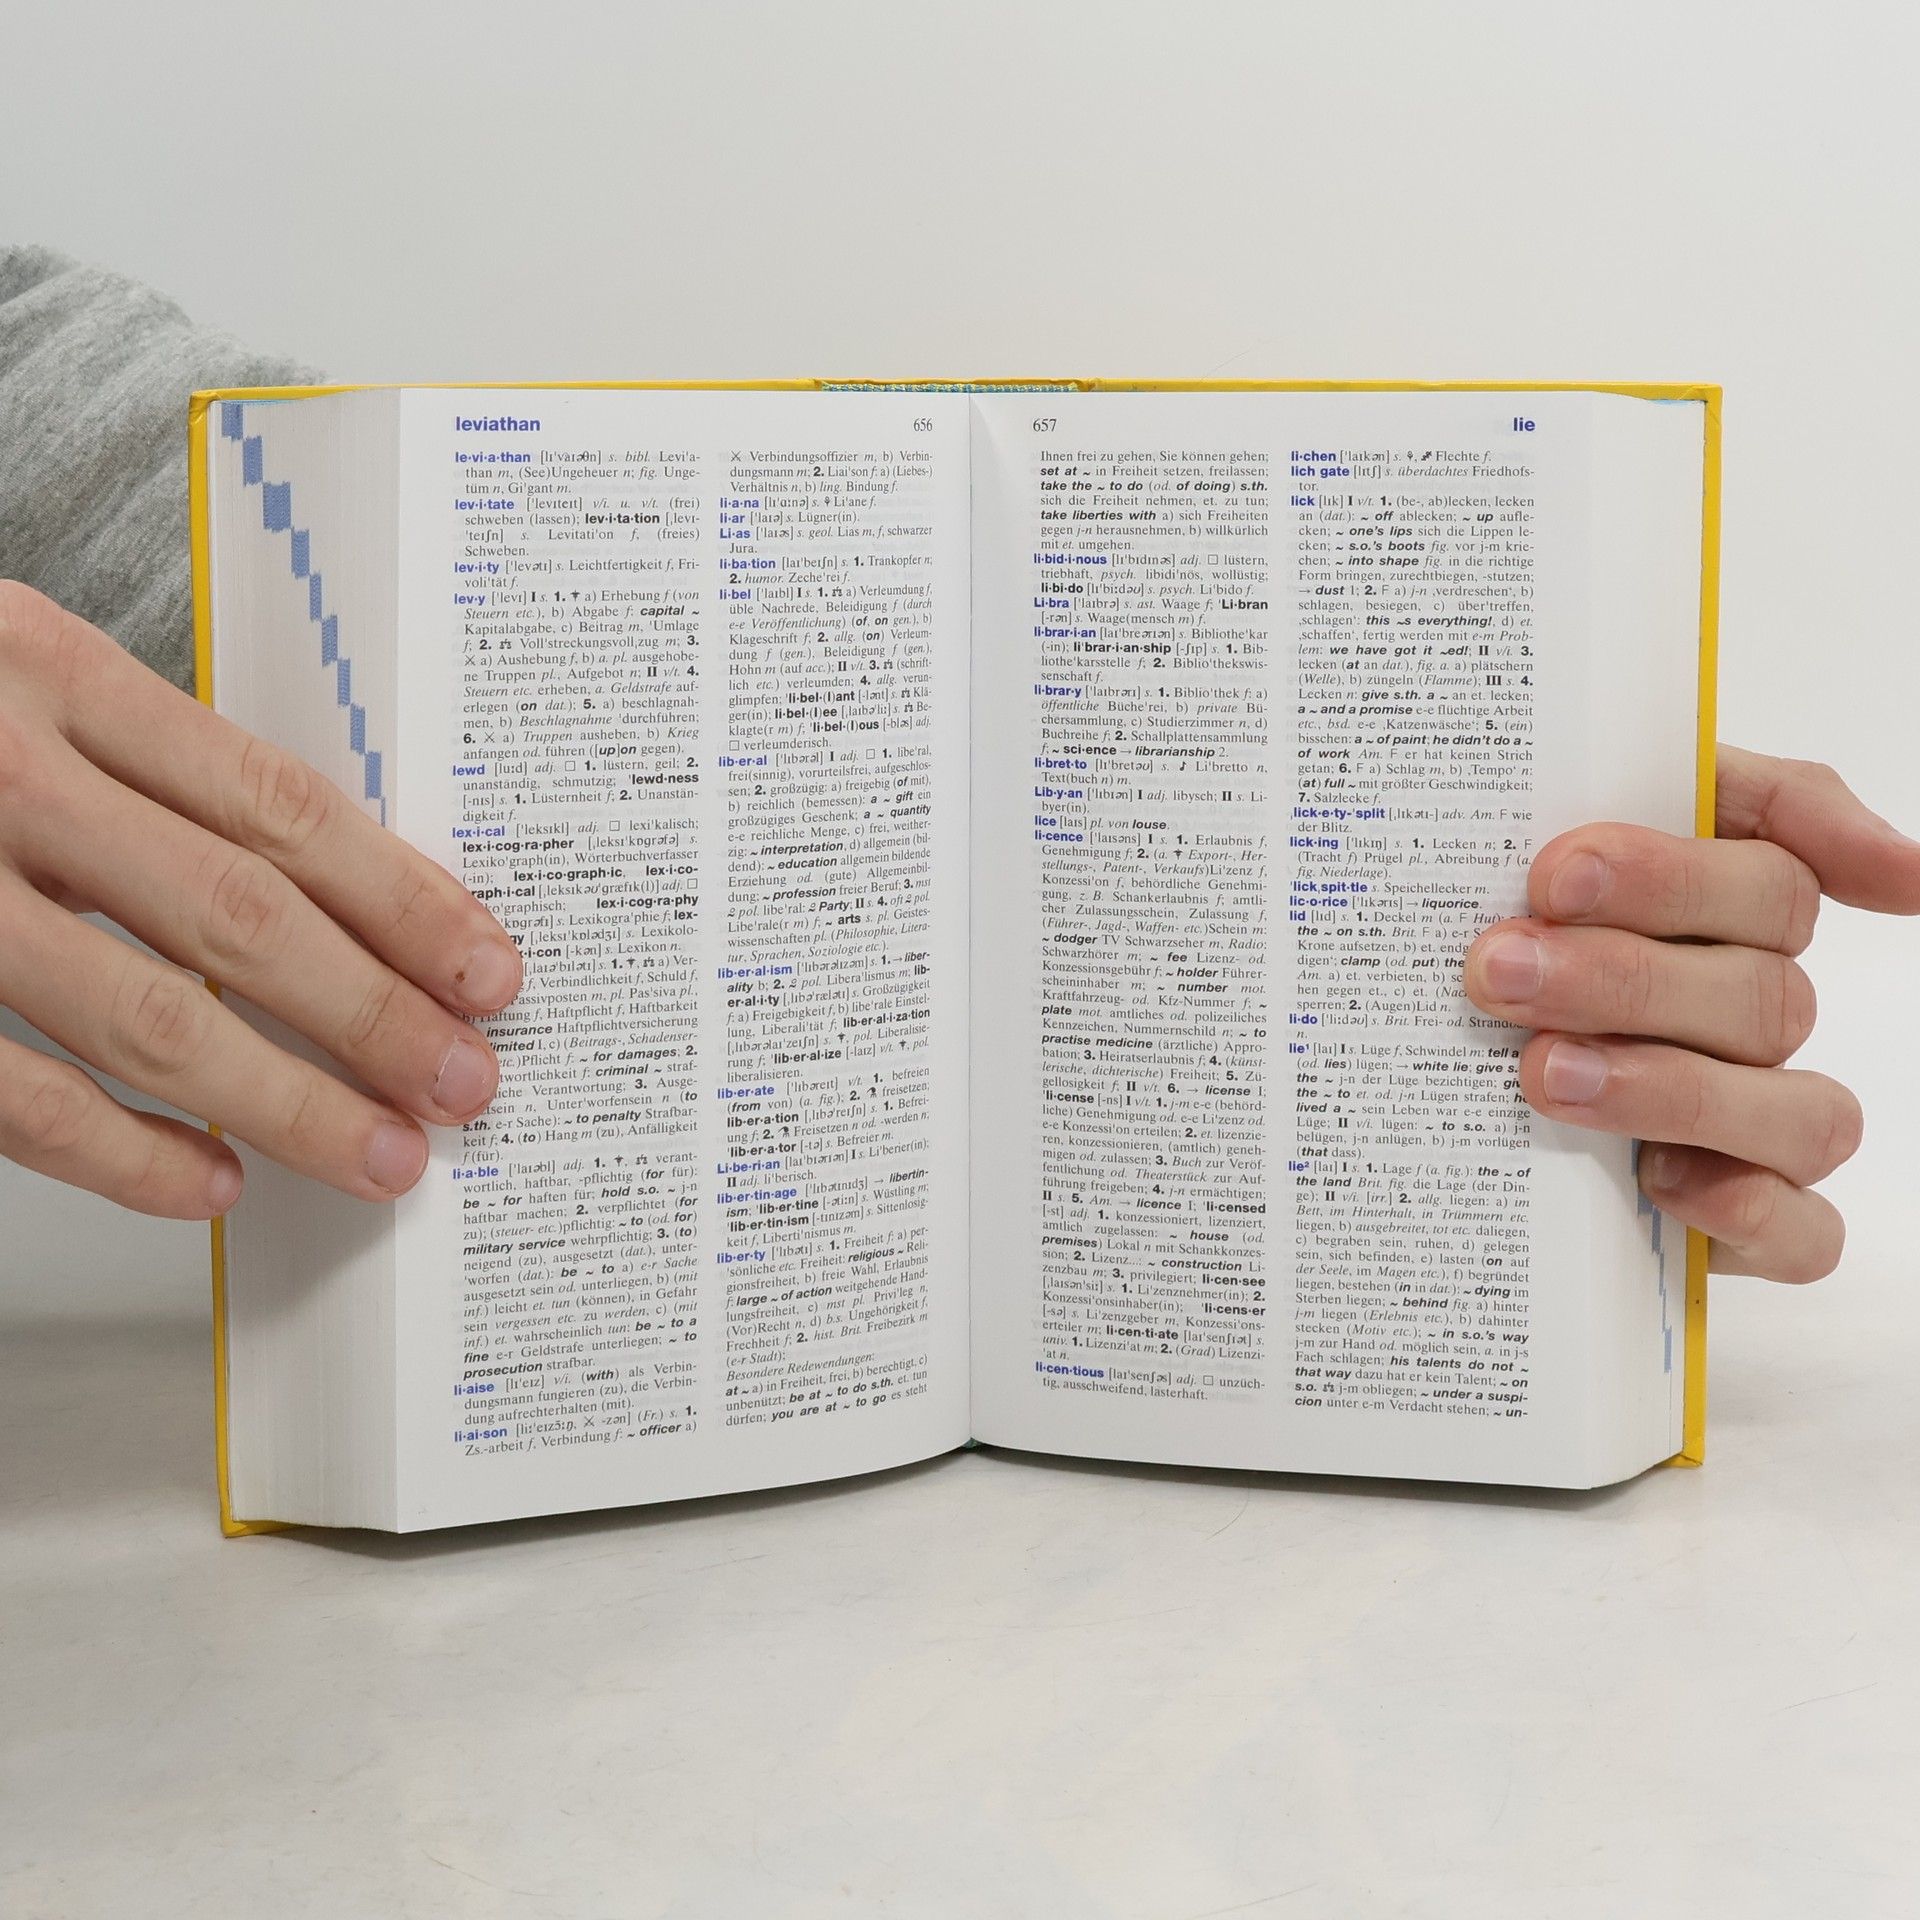 leviathan 656
le·vi·a·than [lɪ'vaɪəθn] s. bibl. Levi'a-
than m, (See)Ungeheuer n; fig. Unge-
tüm n, Gi'gant m.
lev·i·tate ['levɪteɪt] v/i. u. v/t. (frei)
schweben (lassen); lev·i·ta·tion [ˌlevɪ-
'teɪʃn] s. Levitati'on f, (freies)
Schweben.
lev·i·ty ['levətɪ] s. Leichtfertigkeit f, Fri-
voli'tät f.
lev·y ['levɪ] I s. 1. ✝ a) Erhebung f (von
Steuern etc.), b) Abgabe f; capital ~
Kapitalabgabe, c) Beitrag m, 'Umlage
f; 2. ⚖ Voll'streckungsvollˌzug m; 3.
⚔ a) Aushebung f, b) a. pl. ausgehobe-
ne Truppen pl., Aufgebot n; II v/t. 4.
Steuern etc. erheben, a. Geldstrafe auf-
erlegen (on dat.); 5. a) beschlagnah-
men, b) Beschlagnahme 'durchführen;
6. ⚔ a) Truppen ausheben, b) Krieg
anfangen od. führen ([up]on gegen).
lewd [luːd] adj. □ 1. lüstern, geil; 2.
unanständig, schmutzig; 'lewd·ness
[-nɪs] s. 1. Lüsternheit f; 2. Unanstän-
digkeit f.
lex·i·cal ['leksɪkl] adj. □ lexi'kalisch;
lex·i·cog·ra·pher [ˌleksɪ'kɒgrəfə] s.
Lexiko'graph(in), Wörterbuchverfasser
(-in); lex·i·co·graph·ic, lex·i·co-
raph·i·cal [ˌleksɪkəʊ'græfɪk(l)] adj. □
ko'graphisch; lex·i·cog·ra·phy
'kɒgrəfɪ] s. Lexikogra'phie f; lex-
gy [ˌleksɪ'kɒlədʒɪ] s. Lexikolo-
x·i·con [-kən] s. Lexikon n.
[ˌlaɪə'bɪlətɪ] s. 1. ✝, ⚖ a) Ver-
f, Verbindlichkeit f, Schuld f,
Passivposten m, pl. Pas'siva pl.,
b) Haftung f, Haftpflicht f, Haftbarkeit
insurance Haftpflichtversicherung
limited I, c) (Beitrags-, Schadenser-
etc.)Pflicht f: ~ for damages; 2.
twortlichkeit f: criminal ~ straf-
liche Verantwortung; 3. Ausge-
tsein n, Unter'worfensein n (to
s.th. e-r Sache): ~ to penalty Strafbar-
keit f; 4. (to) Hang m (zu), Anfälligkeit
f (für).
li·a·ble ['laɪəbl] adj. 1. ✝, ⚖ verant-
wortlich, haftbar, -pflichtig (for für):
be ~ for haften für; hold s.o. ~ j-n
haftbar machen; 2. verpflichtet (for
zu); (steuer- etc.)pflichtig: ~ to (od. for)
military service wehrpflichtig; 3. (to)
neigend (zu), ausgesetzt (dat.), unter-
'worfen (dat.): be ~ to a) e-r Sache
ausgesetzt sein od. unterliegen, b) (mit
inf.) leicht et. tun (können), in Gefahr
sein vergessen etc. zu werden, c) (mit
inf.) et. wahrscheinlich tun: be ~ to a
fine e-r Geldstrafe unterliegen; ~ to
prosecution strafbar.
li·aise [lɪ'eɪz] v/i. (with) als Verbin-
dungsmann fungieren (zu), die Verbin-
dung aufrechterhalten (mit).
li·ai·son [liː'eɪzɔ̃ːŋ, ⚔ -zən] (Fr.) s. 1.
Zs.-arbeit f, Verbindung f: ~ officer a)
⚔ Verbindungsoffizier m, b) Verbin-
dungsmann m; 2. Liai'son f: a) (Liebes-)
Verhältnis n, b) ling. Bindung f.
li·a·na [lɪ'ɑːnə] s. ⚘ Li'ane f.
li·ar ['laɪə] s. Lügner(in).
Li·as ['laɪəs] s. geol. Lias m, f, schwarzer
Jura.
li·ba·tion [laɪ'beɪʃn] s. 1. Trankopfer n;
2. humor. Zeche'rei f.
li·bel ['laɪbl] I s. 1. ⚖ a) Verleumdung f,
üble Nachrede, Beleidigung f (durch
e-e Veröffentlichung) (of, on gen.), b)
Klageschrift f; 2. allg. (on) Verleum-
dung f (gen.), Beleidigung f (gen.),
Hohn m (auf acc.); II v/t. 3. ⚖ (schrift-
lich etc.) verleumden; 4. allg. verun-
glimpfen; 'li·bel·(l)ant [-lənt] s. ⚖ Klä-
ger(in); li·bel·(l)ee [ˌlaɪbə'liː] s. ⚖ Be-
klagte(r m) f; 'li·bel·(l)ous [-bləs] adj.
□ verleumderisch.
lib·er·al ['lɪbərəl] I adj. □ 1. libe'ral,
frei(sinnig), vorurteilsfrei, aufgeschlos-
sen; 2. großzügig: a) freigebig (of mit),
b) reichlich (bemessen): a ~ gift ein
großzügiges Geschenk; a ~ quantity
e-e reichliche Menge, c) frei, weither-
zig: ~ interpretation, d) allgemein (bil-
dend): ~ education allgemein bildende
Erziehung od. (gute) Allgemeinbil-
dung; ~ profession freier Beruf; 3. mst
♎ pol. libe'ral: ♎ Party; II s. 4. oft ♎ pol.
Libe'rale(r m) f; ~ arts s. pl. Geistes-
wissenschaften pl. (Philosophie, Litera-
tur, Sprachen, Soziologie etc.).
lib·er·al·ism ['lɪbərəlɪzəm] s. 1. → liber-
ality b; 2. ♎ pol. Libera'lismus m; lib-
er·al·i·ty [ˌlɪbə'rælətɪ] s. Großzügigkeit
f: a) Freigebigkeit f, b) libe'rale Einstel-
lung, Liberali'tät f; lib·er·al·i·za·tion
[ˌlɪbərəlaɪ'zeɪʃn] s. ✝, pol. Liberalisie-
rung f; 'lib·er·al·ize [-laɪz] v/t. ✝, pol.
liberalisieren.
lib·er·ate ['lɪbəreɪt] v/t. 1. befreien
(from von) (a. fig.); 2. ⚗ freisetzen;
lib·er·a·tion [ˌlɪbə'reɪʃn] s. 1. Befrei-
ung f; 2. ⚗ Freisetzen n od. -werden n;
'lib·er·a·tor [-tə] s. Befreier m.
Li·be·ri·an [laɪ'bɪərɪən] I s. Li'berier(in);
II adj. li'berisch.
lib·er·tin·age ['lɪbətɪnɪdʒ] → libertin-
ism; 'lib·er·tine [-ətiːn] s. Wüstling m;
'lib·er·tin·ism [-tɪnɪzəm] s. Sittenlosig-
keit f, Liberti'nismus m.
lib·er·ty ['lɪbətɪ] s. 1. Freiheit f: a) per-
'sönliche etc. Freiheit: religious ~ Reli-
gionsfreiheit, b) freie Wahl, Erlaubnis
f: large ~ of action weitgehende Hand-
lungsfreiheit, c) mst pl. Privi'leg n,
(Vor)Recht n, d) b.s. Ungehörigkeit f,
Frechheit f; 2. hist. Brit. Freibezirk m
(e-r Stadt);
Besondere Redewendungen:
at ~ a) in Freiheit, frei, b) berechtigt, c)
unbenützt; be at ~ to do s.th. et. tun
dürfen; you are at ~ to go es steht
657 lie
Ihnen frei zu gehen, Sie können gehen;
set at ~ in Freiheit setzen, freilassen;
take the ~ to do (od. of doing) s.th.
sich die Freiheit nehmen, et. zu tun;
take liberties with a) sich Freiheiten
gegen j-n herausnehmen, b) willkürlich
mit et. umgehen.
li·bid·i·nous [lɪ'bɪdɪnəs] adj. □ lüstern,
triebhaft, psych. libidi'nös, wollüstig;
li·bi·do [lɪ'biːdəʊ] s. psych. Li'bido f.
Li·bra ['laɪbrə] s. ast. Waage f; 'Li·bran
[-rən] s. Waage(mensch m) f.
li·brar·i·an [laɪ'breərɪən] s. Bibliothe'kar
(-in); li'brar·i·an·ship [-ʃɪp] s. 1. Bib-
liothe'karsstelle f; 2. Biblio'thekswis-
senschaft f.
li·brar·y ['laɪbrərɪ] s. 1. Biblio'thek f: a)
öffentliche Büche'rei, b) private Bü-
chersammlung, c) Studierzimmer n, d)
Buchreihe f; 2. Schallplattensammlung
f; ~ sci·ence → librarianship 2.
li·bret·to [lɪ'bretəʊ] s. ♪ Li'bretto n,
Text(buch n) m.
Lib·y·an ['lɪbɪən] I adj. libysch; II s. Li-
byer(in).
lice [laɪs] pl. von louse.
li·cence ['laɪsəns] I s. 1. Erlaubnis f,
Genehmigung f; 2. (a. ✝ Export-, Her-
stellungs-, Patent-, Verkaufs)Li'zenz f,
Konzessi'on f, behördliche Genehmi-
gung, z. B. Schankerlaubnis f; amtli-
cher Zulassungsschein, Zulassung f,
(Führer-, Jagd-, Waffen- etc.)Schein m:
~ dodger TV Schwarzseher m, Radio:
Schwarzhörer m; ~ fee Lizenz- od.
Konzessionsgebühr f; ~ holder Führer-
scheininhaber m; ~ number mot.
Kraftfahrzeug- od. Kfz-Nummer f; ~
plate mot. amtliches od. polizeiliches
Kennzeichen, Nummernschild n; ~ to
practise medicine (ärztliche) Appro-
bation; 3. Heiratserlaubnis f; 4. (künst-
lerische, dichterische) Freiheit; 5. Zü-
gellosigkeit f; II v/t. 6. → license I;
'li·cense [-ns] I v/t. 1. j-m e-e (behörd-
liche) Genehmigung od. e-e Li'zenz od.
e-e Konzessi'on erteilen; 2. et. lizenzie-
ren, konzessionieren, (amtlich) geneh-
migen od. zulassen; 3. Buch zur Veröf-
fentlichung od. Theaterstück zur Auf-
führung freigeben; 4. j-n ermächtigen;
II s. 5. Am. → licence I; 'li·censed
[-st] adj. 1. konzessioniert, lizenziert,
amtlich zugelassen: ~ house (od.
premises) Lokal n mit Schankkonzes-
sion; 2. Lizenz...: ~ construction Li-
zenzbau m; 3. privilegiert; li·cen·see
[ˌlaɪsən'siː] s. 1. Li'zenznehmer(in); 2.
Konzessi'onsinhaber(in); 'li·cens·er
[-sə] s. Li'zenzgeber m, Konzessi'ons-
erteiler m; li·cen·ti·ate [laɪ'senʃɪət] s.
univ. 1. Lizenzi'at m; 2. (Grad) Lizenzi-
'at n.
li·cen·tious [laɪ'senʃəs] adj. □ unzüch-
tig, ausschweifend, lasterhaft.
li·chen ['laɪkən] s. ⚘, ⚕ Flechte f.
lich gate [lɪtʃ] s. überdachtes Friedhofs-
tor.
lick [lɪk] I v/t. 1. (be-, ab)lecken, lecken
an (dat.): ~ off ablecken; ~ up aufle-
cken; ~ one's lips sich die Lippen le-
cken; ~ s.o.'s boots fig. vor j-m krie-
chen; ~ into shape fig. in die richtige
Form bringen, zurechtbiegen, -stutzen;
→ dust 1; 2. F a) j-n ‚verdreschen', b)
schlagen, besiegen, c) über'treffen,
‚schlagen': this ~s everything!, d) et.
‚schaffen', fertig werden mit e-m Prob-
lem: we have got it ~ed!; II v/i. 3.
lecken (at an dat.), fig. a. a) plätschern
(Welle), b) züngeln (Flamme); III s. 4.
Lecken n: give s.th. a ~ an et. lecken;
a ~ and a promise e-e flüchtige Arbeit
etc., bsd. e-e ‚Katzenwäsche'; 5. (ein)
bisschen: a ~ of paint; he didn't do a ~
of work Am. F er hat keinen Strich
getan; 6. F a) Schlag m, b) ‚Tempo' n:
(at) full ~ mit größter Geschwindigkeit;
7. Salzlecke f.
ˌlick·e·ty-'split [ˌlɪkətɪ-] adv. Am. F wie
der Blitz.
lick·ing ['lɪkɪŋ] s. 1. Lecken n; 2. F
(Tracht f) Prügel pl., Abreibung f (a.
fig. Niederlage).
'lickˌspit·tle s. Speichellecker m.
lic·o·rice ['lɪkərɪs] → liquorice.
lid [lɪd] s. 1. Deckel m (a. F Hut):
the ~ on s.th. Brit. F a) e-r S
Krone aufsetzen, b) et. endg
digen'; clamp (od. put) the
Am. a) et. verbieten, b) sc
hen gegen et., c) et. (Nac
sperren; 2. (Augen)Lid n.
li·do ['liːdəʊ] s. Brit. Frei- od. Strandba
n.
lie¹ [laɪ] I s. Lüge f, Schwindel m: tell a
(od. lies) lügen; → white lie; give s.
the ~ j-n der Lüge bezichtigen; giv
the ~ to et. od. j-n Lügen strafen; he
lived a ~ sein Leben war e-e einzige
Lüge; II v/i. lügen: ~ to s.o. a) j-n
belügen, j-n anlügen, b) j-m vorlügen
(that dass).
lie² [laɪ] I s. 1. Lage f (a. fig.): the ~ of
the land Brit. fig. die Lage (der Din-
ge); II v/i. [irr.] 2. allg. liegen: a) im
Bett, im Hinterhalt, in Trümmern etc.
liegen, b) ausgebreitet, tot etc. daliegen,
c) begraben sein, ruhen, d) gelegen
sein, sich befinden, e) lasten (on auf
der Seele, im Magen etc.), f) begründet
liegen, bestehen (in in dat.): ~ dying im
Sterben liegen; ~ behind fig. a) hinter
j-m liegen (Erlebnis etc.), b) dahinter
stecken (Motiv etc.); ~ in s.o.'s way
j-m zur Hand od. möglich sein, a. in j-s
Fach schlagen; his talents do not ~
that way dazu hat er kein Talent; ~ on
s.o. ⚖ j-m obliegen; ~ under a suspi-
cion unter e-m Verdacht stehen; ~ un-